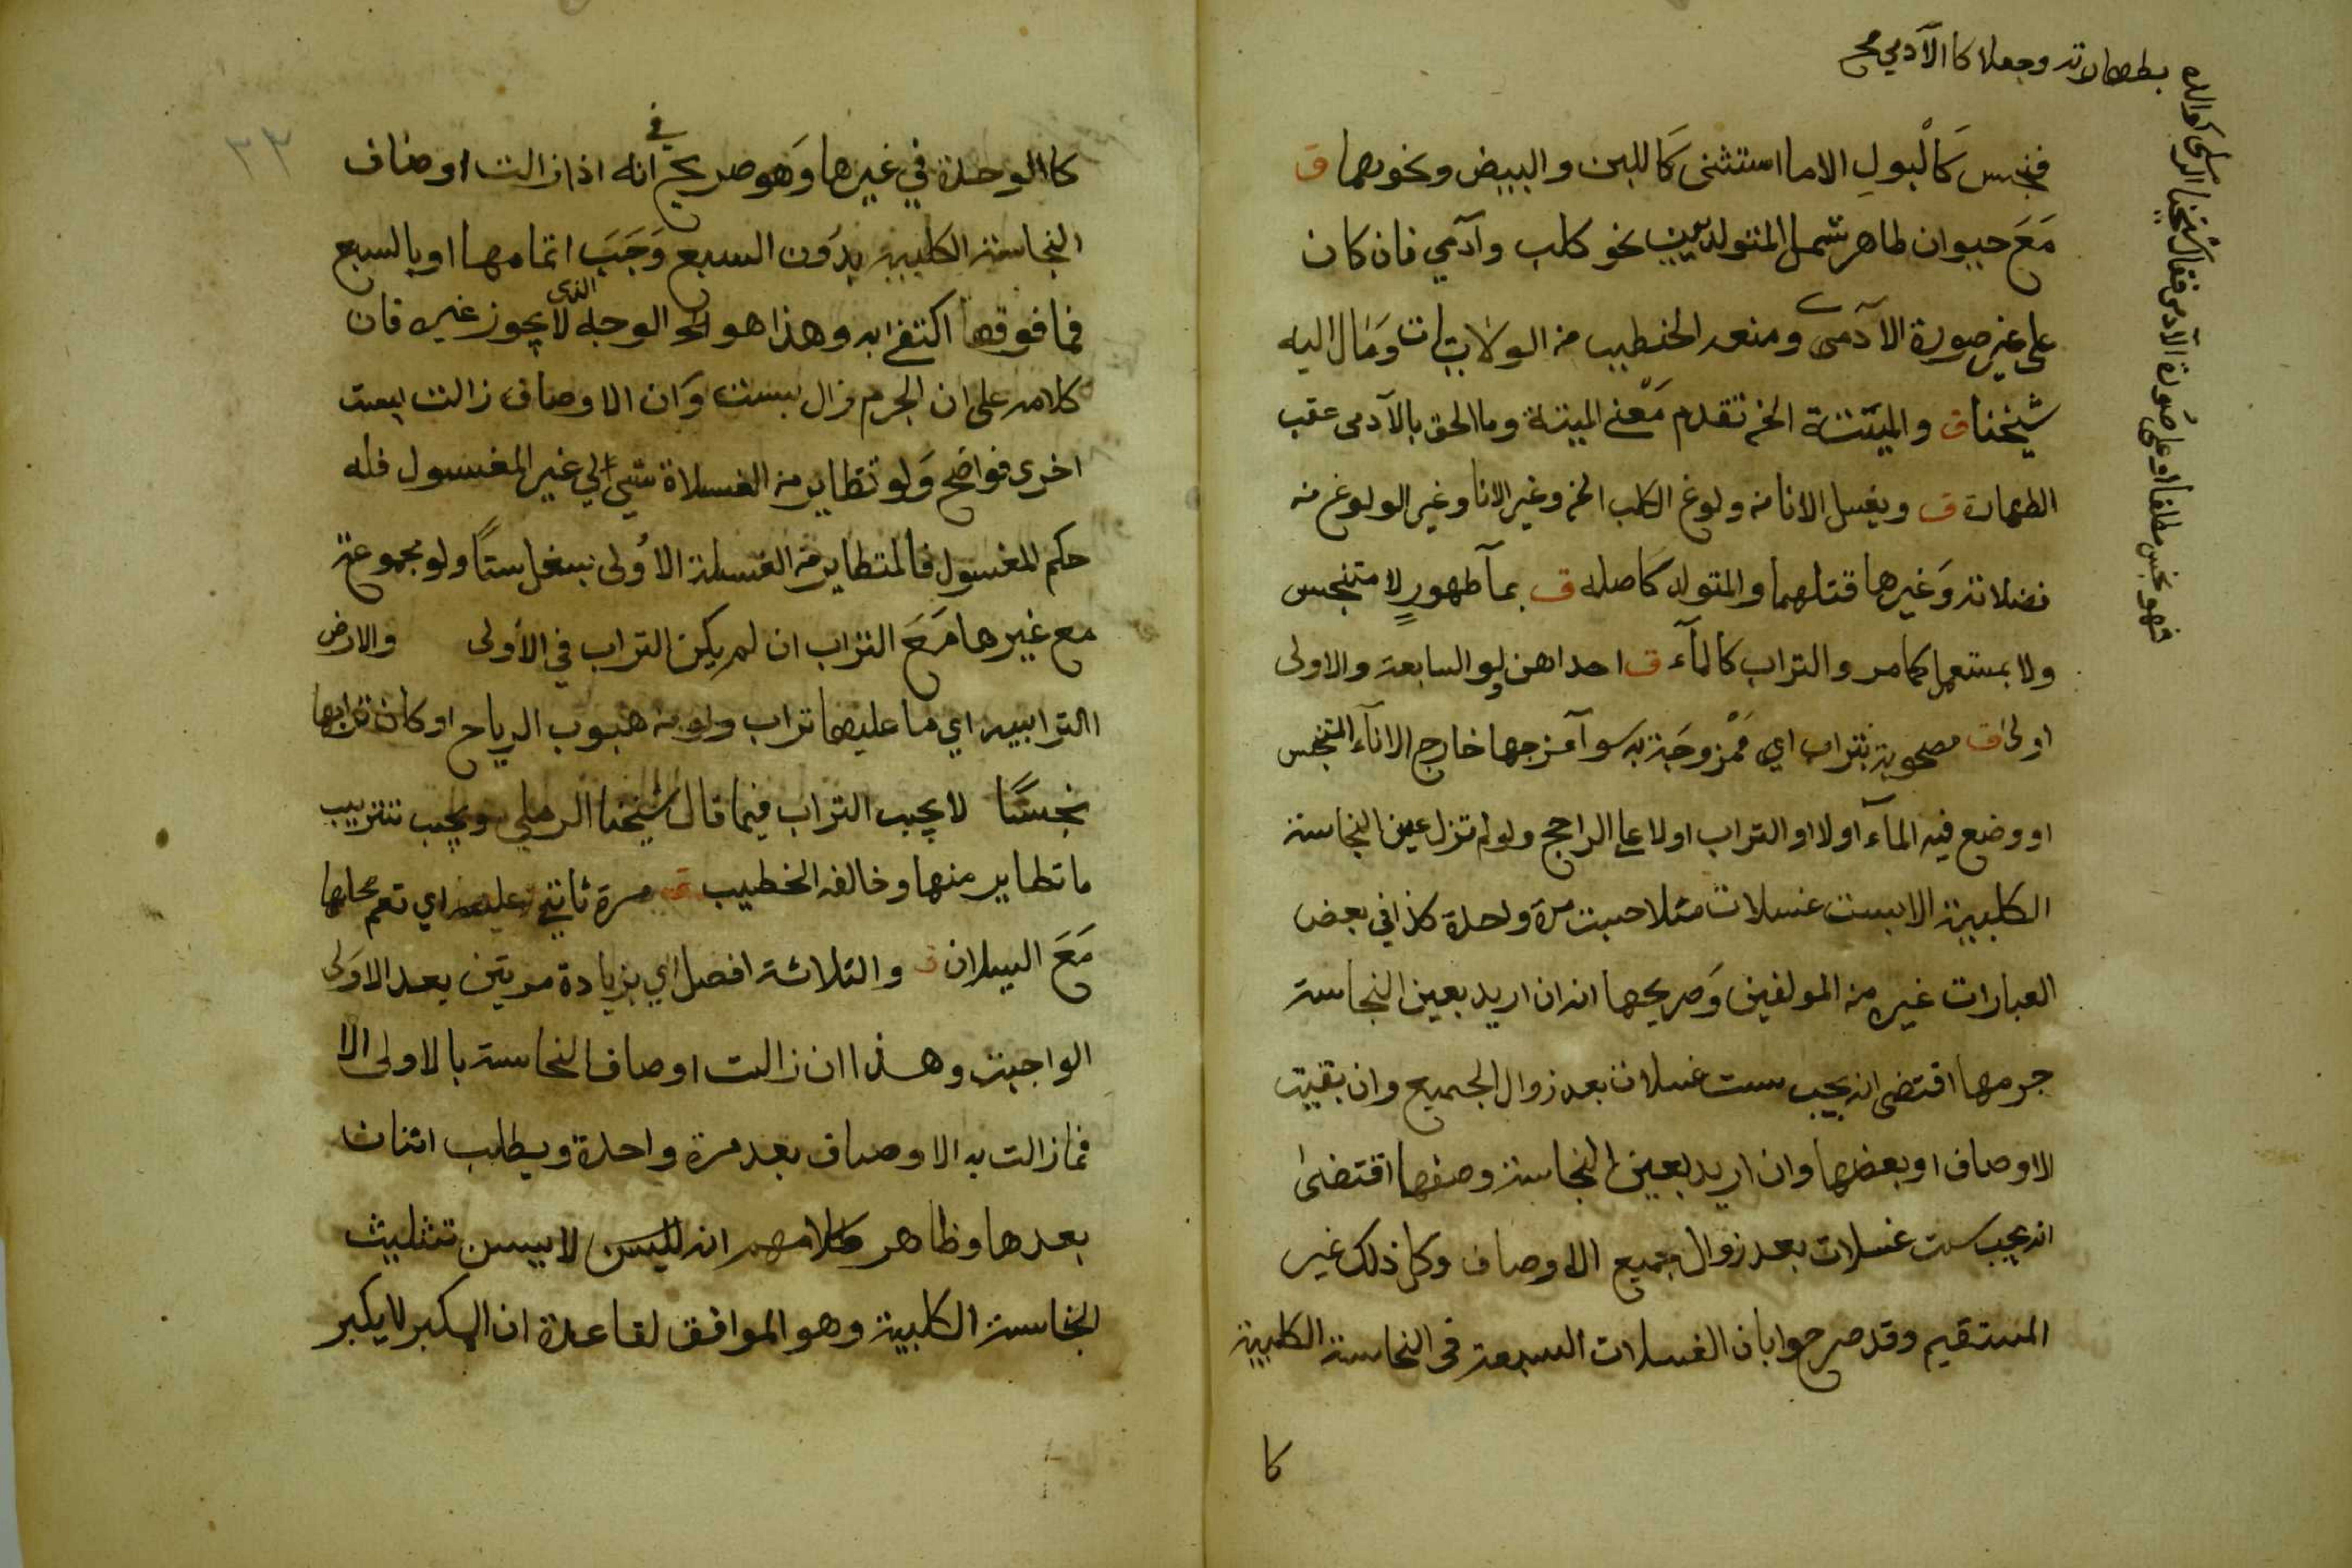 فنجس كَالْبولِ الا ما استثنى كَاللبن والبيض ونحوهما ق
مَعَ حيوان طاهر شمل المتولد بين نحو كلب وآدمي فان كان
على غير صورة الآدمى ومنعه الخطيب من الولايات وَمَال اليه
شيخنا ق والميتة الخ تقدم مَعْنى الميتة وما الحق بالآدمى عقب
الطهارة ق ويغسل الانا من ولوغ الكلب الخ وغير الانا وغير الولوغ من
فضلاته وَغيرها مثلهما والمتولد كاصله ق بمآ طهورٍ لا متنجس
ولا بمستعمل كما مر والتراب كالمآء ق احداهن ولو السابعة والاولى
اولى ق مصحوبة بتراب اي مَمْزوجَة به سوآ مزجها خارج الانآء المتنجس
او وضع فيه المآء اولا او التراب اولا على الراجح ولو لم تزل عين النجاسة
الكلبية الا بست غسلات مثلا حسبت مرة واحدة كذا في بعض
العبارات غيره من المولفين وَصريحها انه ان اريد بعين النجاسة
جرمها اقتضى انه يجب ست غسلات بعد زوال الجميع وان بقيت
الاوصاف او بعضها وان اريد بعين النجاسة وصفها اقتضىٰ
انه يجب ست غسلات بعد زوال جميع الاوصاف وكل ذلك غير
المستقيم وقد صرحوا بان الغسلات السبعة في النجاسة الكلبية
كا
كوالده شيخنا الرملي فقال الآدمى صورة على او مطلقا نجس فهو
بطهارته وجعلا كا الآدمي صح
كا الوحدة في غيرها وَهو صريح في انه اذا زالت اوصاف
النجاسة الكلبية بدُون السبع وَجَبَ اتمامها او بالسبع
فما فوقها اكتفى به وهذا هو الوجه الذى لا يجوز غيره فان
كلامه على ان الجرم زال بست وَان الاوصاف زالت بست
اخرى فواضح وَلو تطاير من الغسلاة شيء الي غير المغسول فله
حكم المغسول فالمتطاير من الغسلة الاُولى يغسل ستًا ولو مجموعة
مع غيرها مَعَ التراب ان لم يكن التراب في الأولى والارض
الترابيه اي ما عليها تراب ولو من هبوب الرياح او كان ترابها
نجسًا لا يجب التراب فيما قال شيخنا الرملي ويجب تتريب
ما تطاير منها وخالفه الخطيب ق مرة ثاتي عليه اي تعم محلها
مَعَ السيلان ق والثلاثة افضل اي بزيادة مرتين بعد الاوَلى
الواجبة وهذا ان زالت اوصاف النجاسة بالاولى الا
فما زالت به الاوصاف يعد مرة واحدة ويطلب اثنان
بعدها وظاهر كلامهم انه ليس لا يسن تثليث
النجاسة الكلبية وهو الموافق لقاعدة ان المكبر لا يكبر
٢٣